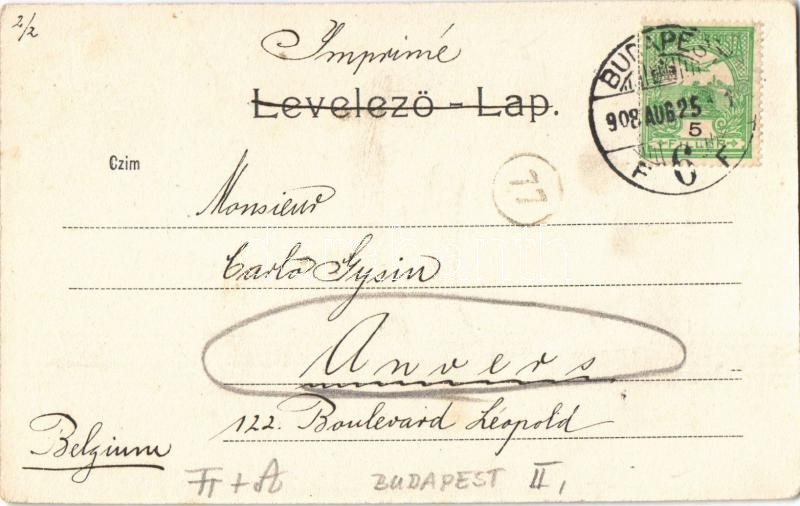 2/2
Imprimé
Levelező-Lap.
BUDAPEST
908 AUG 25
6
F F
5
Czim
11
Monsieur
Carlo Gysin
Anvers
122. Boulevard Léopold
Belgium
BUDAPEST II,